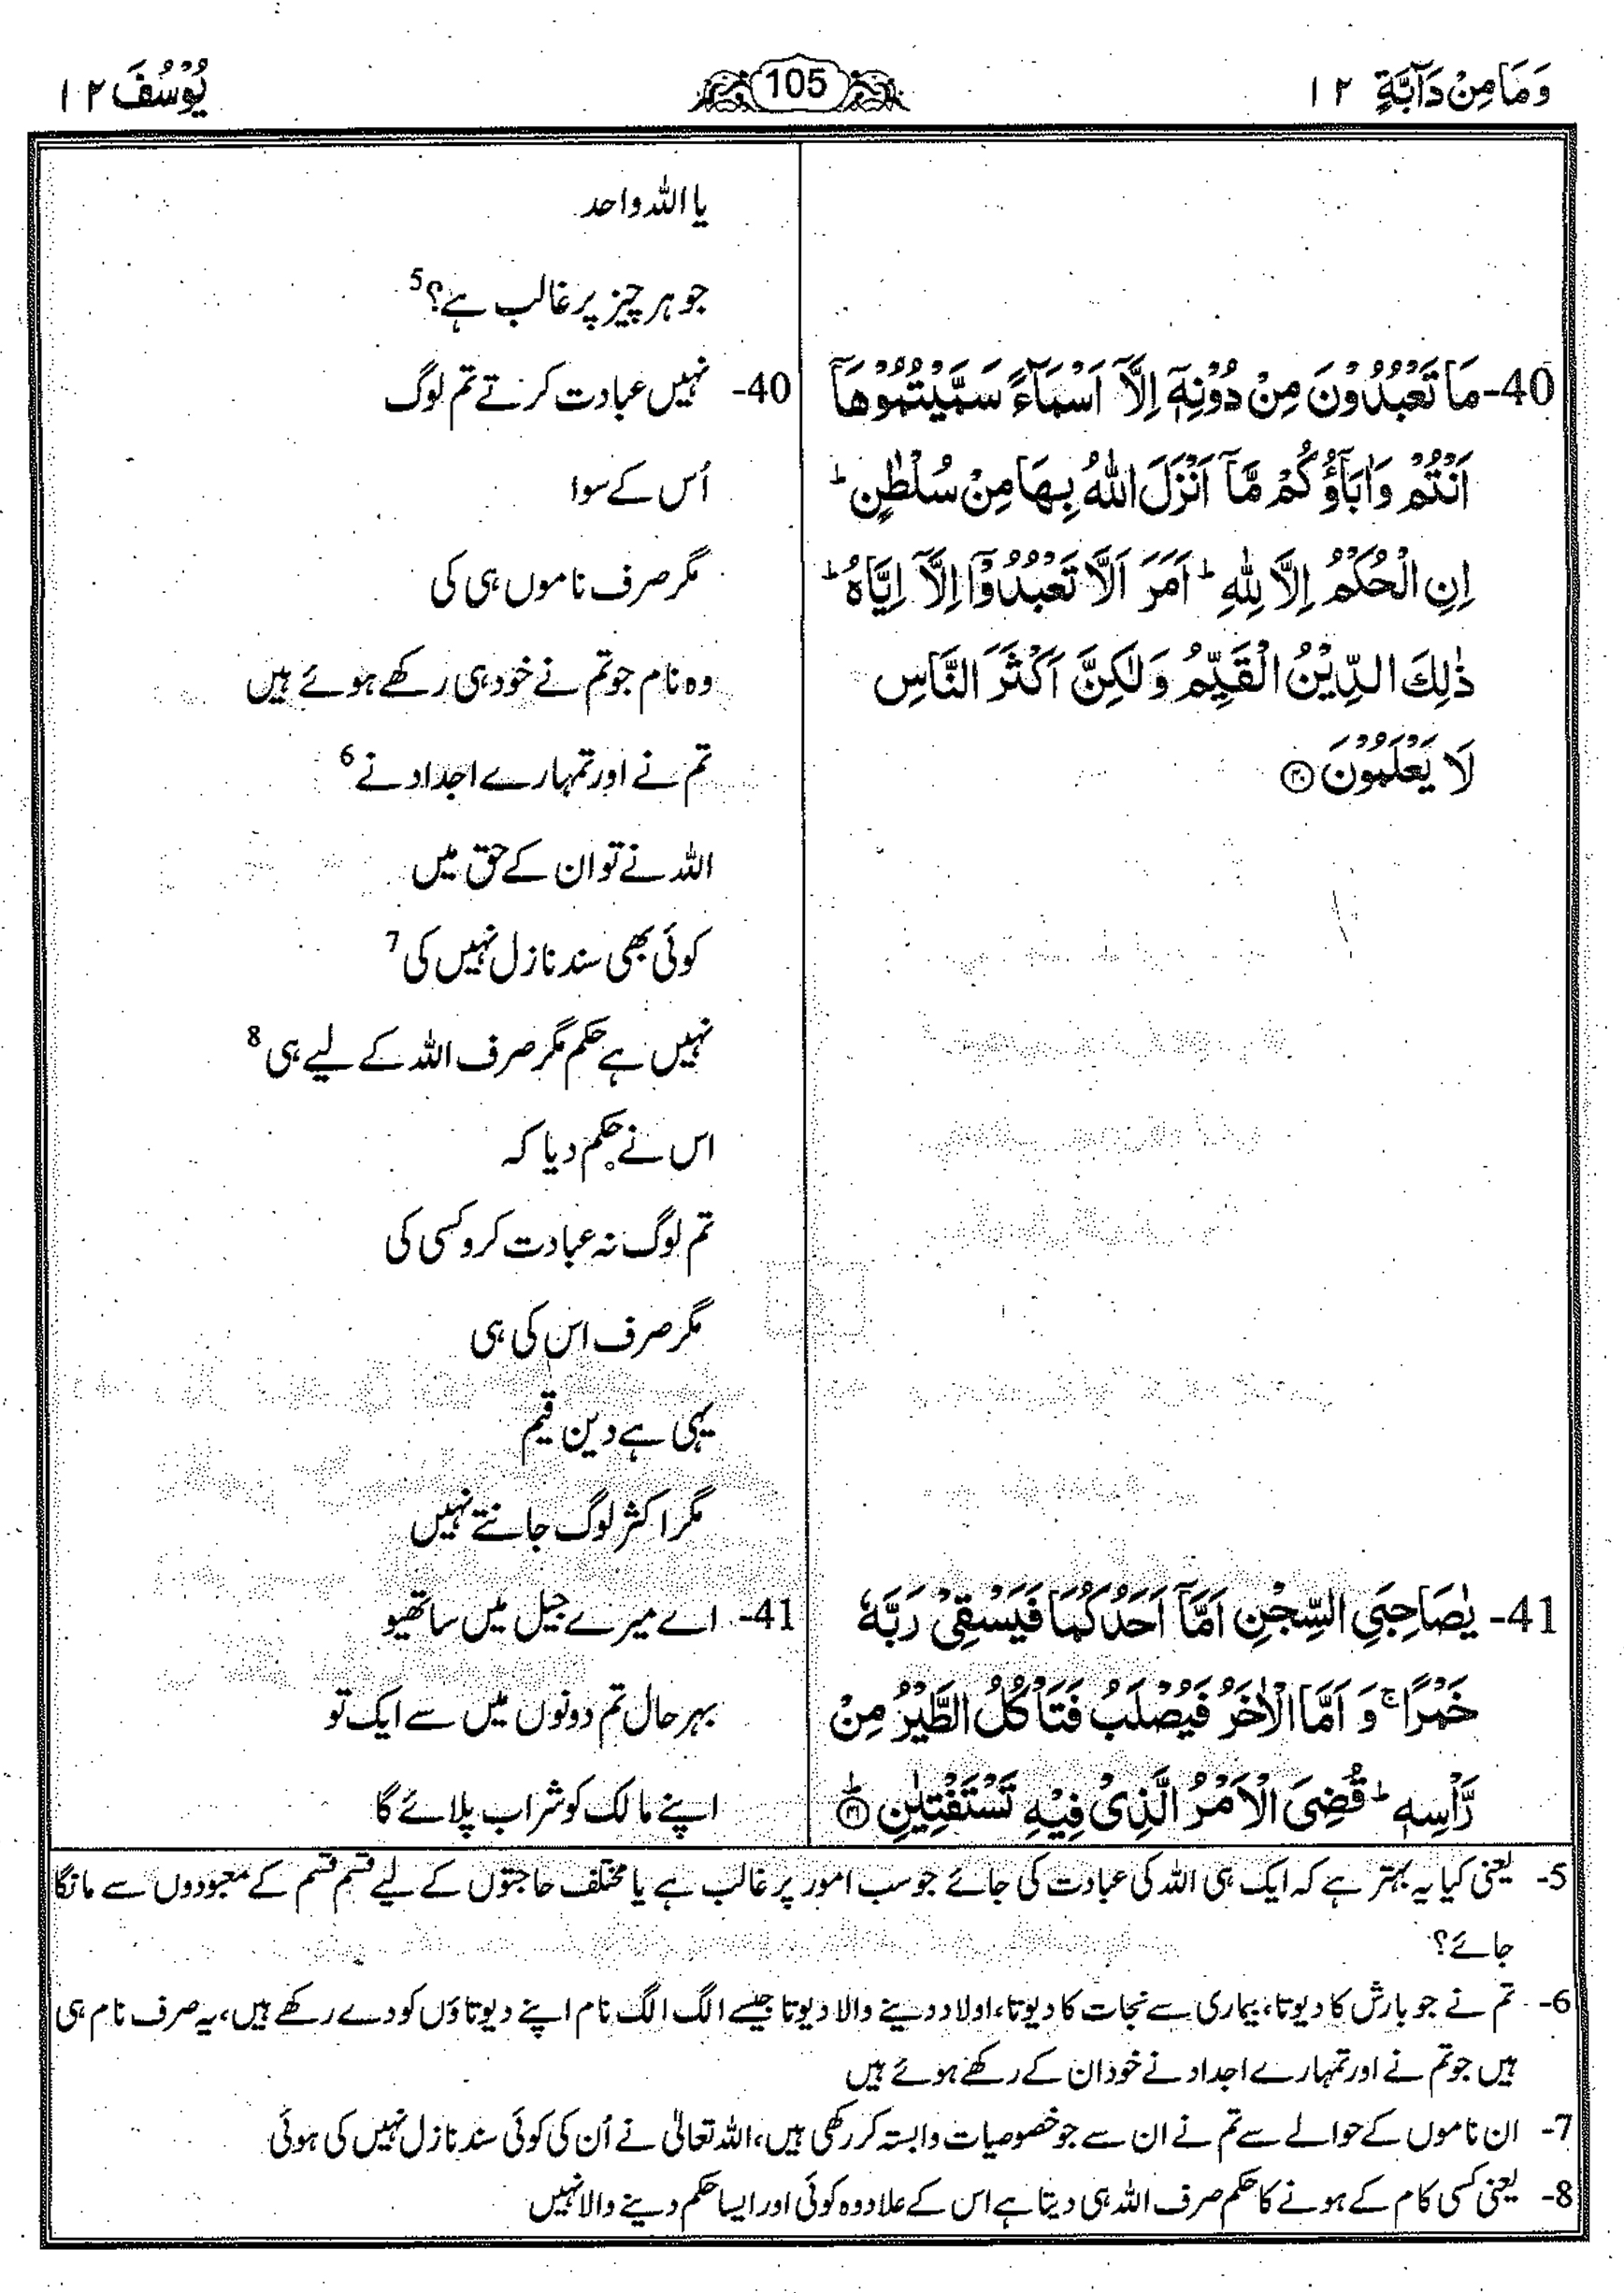 وَمَا مِنْ دَآبَّةٍ ۱۲
105
يُوْسُفَ ۱۲
40- مَا تَعْبُدُوْنَ مِنْ دُوْنِهٖۤ اِلَّاۤ اَسْمَآءً سَمَّيْتُمُوْهَاۤ
اَنْتُمْ وَاٰبَآؤُكُمْ مَّاۤ اَنْزَلَ اللّٰهُ بِهَا مِنْ سُلْطٰنٍ ؕ
اِنِ الْحُكْمُ اِلَّا لِلّٰهِ ؕ اَمَرَ اَلَّا تَعْبُدُوْۤا اِلَّاۤ اِيَّاهُ ؕ
ذٰلِكَ الدِّيْنُ الْقَيِّمُ وَلٰكِنَّ اَكْثَرَ النَّاسِ
لَا يَعْلَمُوْنَ ۝۴۰
41- يٰصَاحِبَيِ السِّجْنِ اَمَّاۤ اَحَدُكُمَا فَيَسْقِيْ رَبَّهٗ
خَمْرًا ۚ وَ اَمَّا الْاٰخَرُ فَيُصْلَبُ فَتَاْكُلُ الطَّيْرُ مِنْ
رَّاْسِهٖ ؕ قُضِيَ الْاَمْرُ الَّذِيْ فِيْهِ تَسْتَفْتِيٰنِ ۝۴۱ؕ
یا اللہ واحد
جو ہر چیز پر غالب ہے؟5
40- نہیں عبادت کرتے تم لوگ
اُس کے سوا
مگر صرف ناموں ہی کی
وہ نام جو تم نے خود ہی رکھے ہوئے ہیں
تم نے اور تمہارے اجداد نے6
اللہ نے تو ان کے حق میں
کوئی بھی سند نازل نہیں کی7
نہیں ہے حکم مگر صرف اللہ کے لیے ہی8
اس نے حکم دیا کہ
تم لوگ نہ عبادت کرو کسی کی
مگر صرف اس کی ہی
یہی ہے دین قیم
مگر اکثر لوگ جانتے نہیں
41- اے میرے جیل میں ساتھیو
بہر حال تم دونوں میں سے ایک تو
اپنے مالک کو شراب پلائے گا
5- یعنی کیا یہ بہتر ہے کہ ایک ہی اللہ کی عبادت کی جائے جو سب امور پر غالب ہے یا مختلف حاجتوں کے لیے قسم قسم کے معبودوں سے مانگا
جائے؟
6- تم نے جو بارش کا دیوتا، بیماری سے نجات کا دیوتا، اولاد دینے والا دیوتا جیسے الگ الگ نام اپنے دیوتاؤں کو دے رکھے ہیں، یہ صرف نام ہی
ہیں جو تم نے اور تمہارے اجداد نے خود ان کے رکھے ہوئے ہیں
7- ان ناموں کے حوالے سے تم نے ان سے جو خصوصیات وابستہ کر رکھی ہیں، اللہ تعالیٰ نے اُن کی کوئی سند نازل نہیں کی ہوئی
8- یعنی کسی کام کے ہونے کا حکم صرف اللہ ہی دیتا ہے اس کے علاوہ کوئی اور ایسا حکم دینے والا نہیں